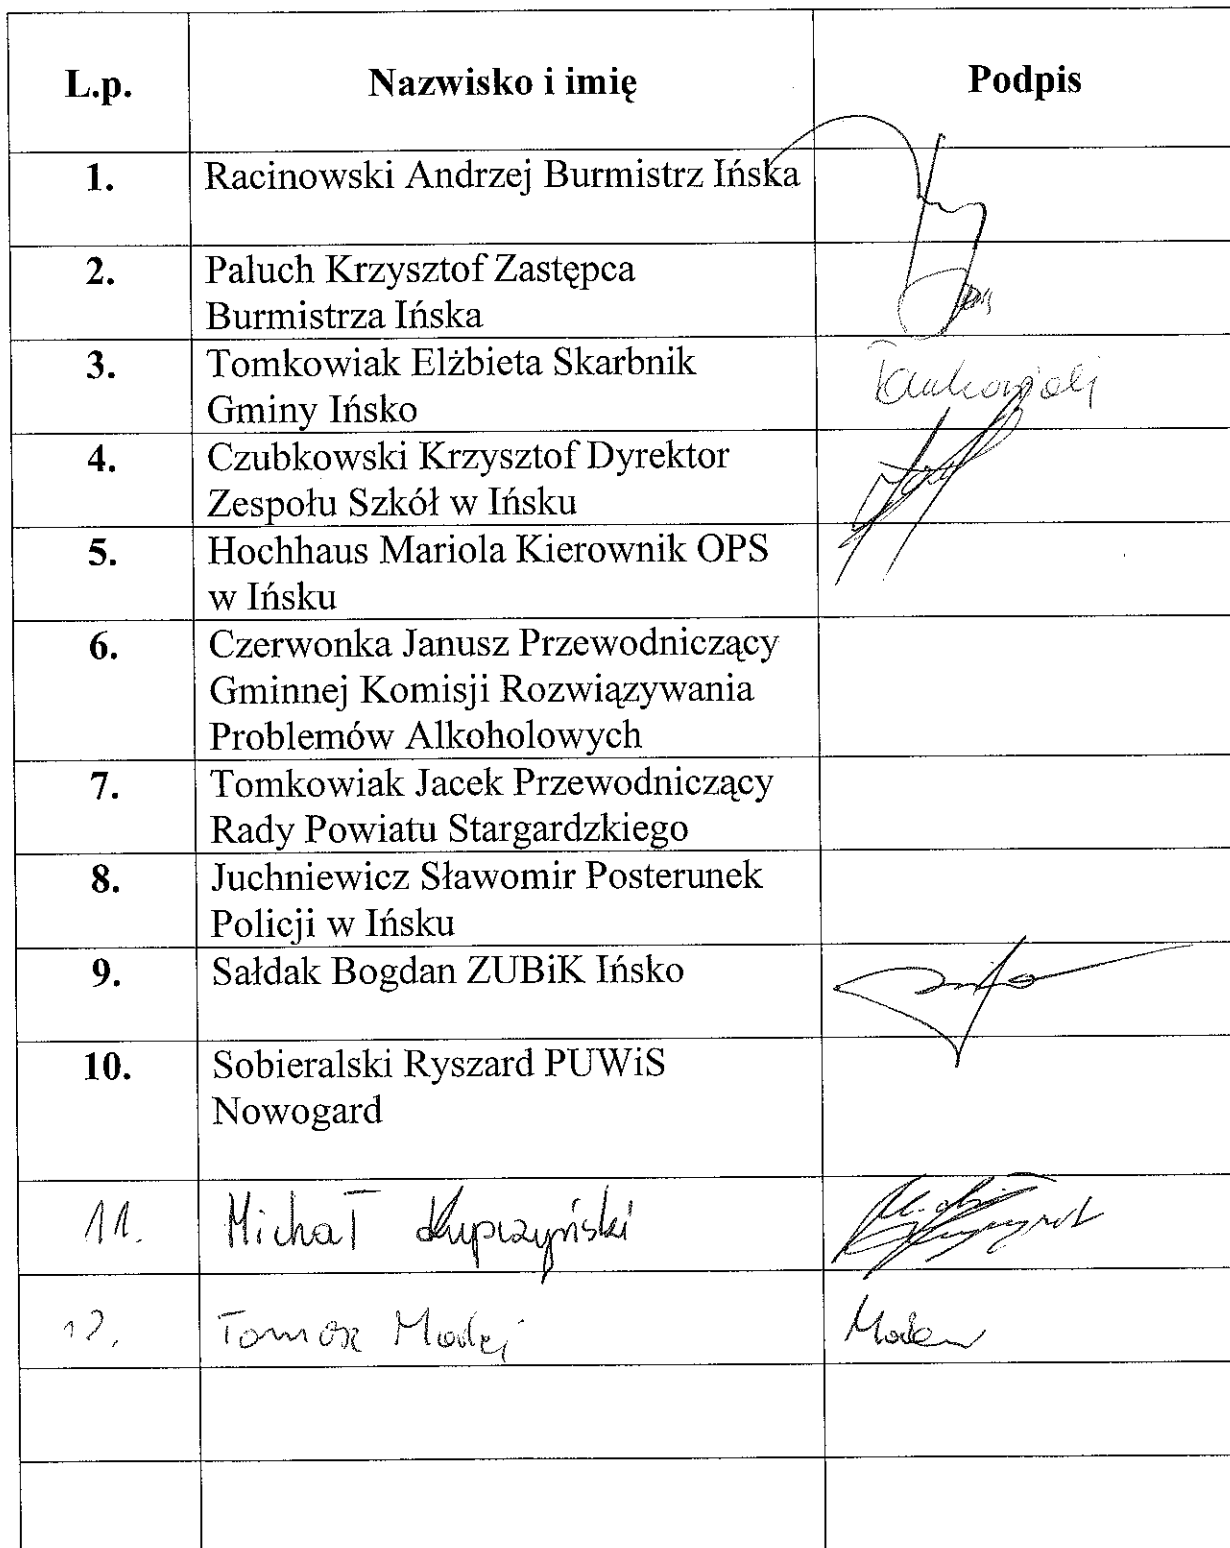 L.p. Nazwisko i imię Podpis
1. Racinowski Andrzej Burmistrz Ińska
2. Paluch Krzysztof Zastępca
Burmistrza Ińska
3. Tomkowiak Elżbieta Skarbnik
Gminy Ińsko
4. Czubkowski Krzysztof Dyrektor
Zespołu Szkół w Ińsku
5. Hochhaus Mariola Kierownik OPS
w Ińsku
6. Czerwonka Janusz Przewodniczący
Gminnej Komisji Rozwiązywania
Problemów Alkoholowych
7. Tomkowiak Jacek Przewodniczący
Rady Powiatu Stargardzkiego
8. Juchniewicz Sławomir Posterunek
Policji w Ińsku
9. Sałdak Bogdan ZUBiK Ińsko
10. Sobieralski Ryszard PUWiS
Nowogard
11. Michał Kupczyński
12. Tomasz Madej